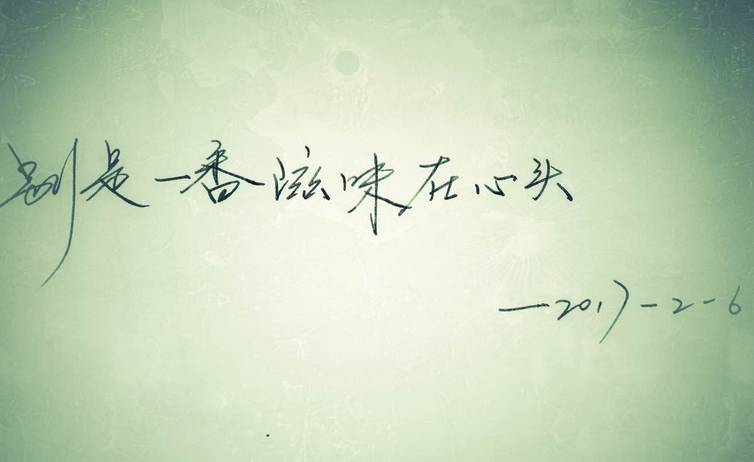 别是一番滋味在心头
—2017-2-6